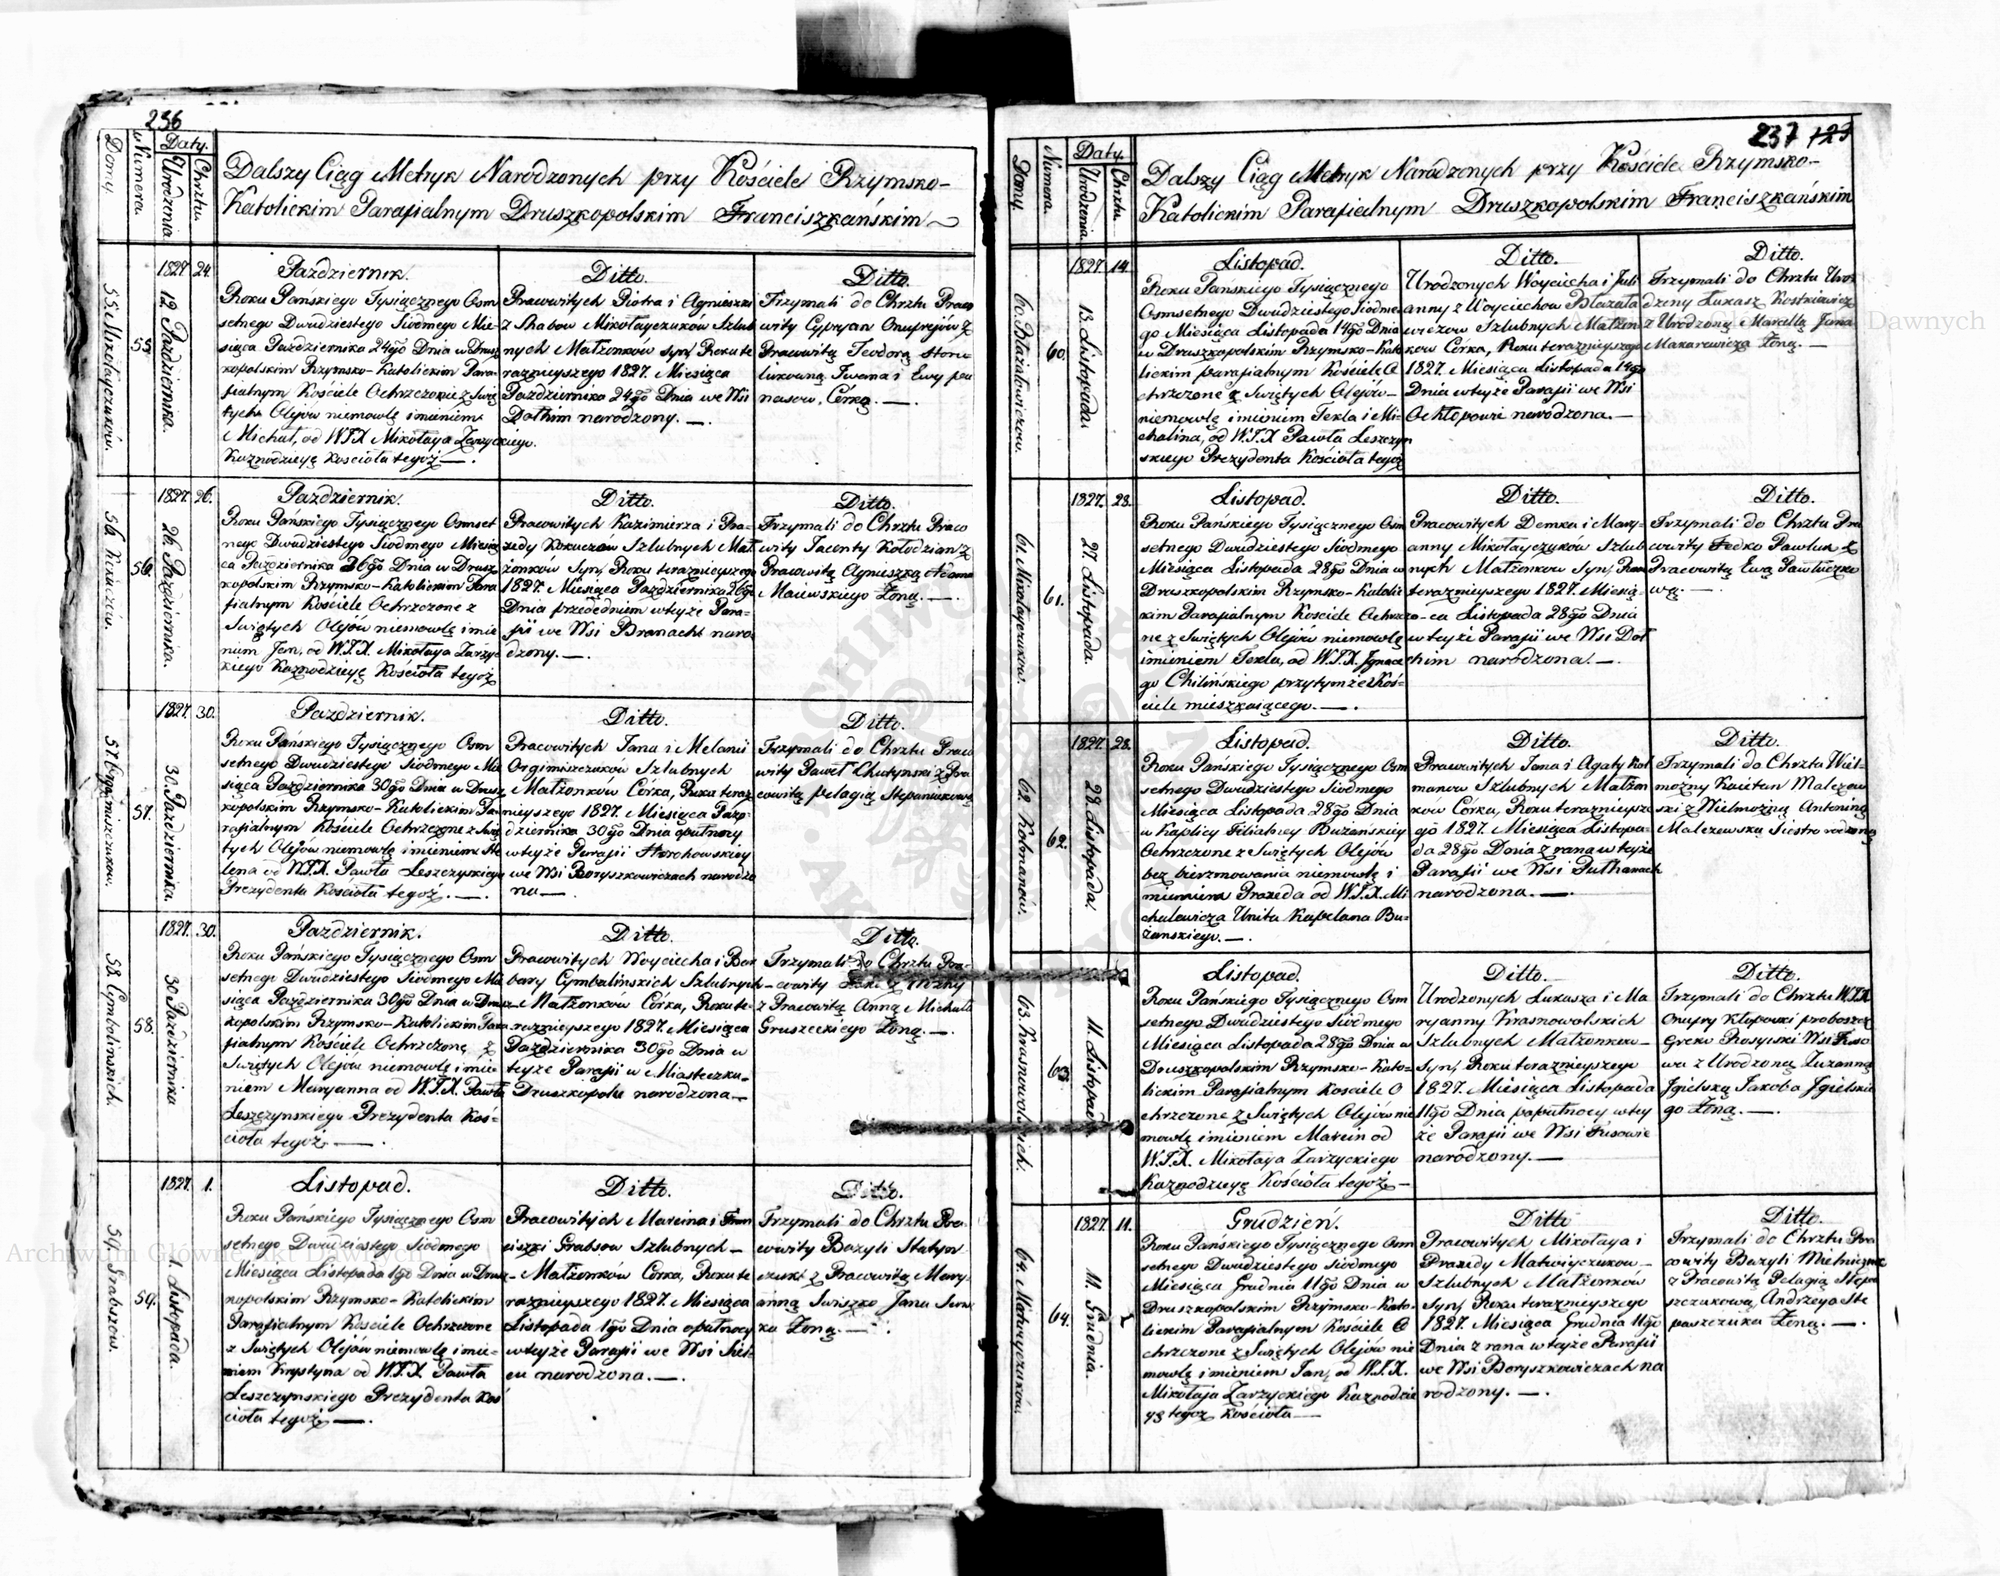 236
Domy.
Numera.
Daty.
Urodzenia
Chrztu.
Dalszy Ciąg Metryk Narodzonych przy Kościele Rzymsko-
Katolickim Parafialnym Druszkopolskim Franciszkańskim
55. Mikołayczuków.
55.
1827. 24.
12. Października.
Październik.
Roku Pańskiego Tysiącznego Osm
setnego Dwudziestego Siódmego Mie-
siąca Października 24go Dnia w Drusz
kopolskim Rzymsko-Katolickim Para-
fialnym Kościele Ochrzczone z Swię
tych Olejów niemowlę imieniem
Michał, od W.J.X. Mikołaya Zarzyckiego.
Kaznodzieyę Kościoła tegoż —.
Ditto.
Pracowitych Piotra i Agnieszki
z Shabow Mikołayczuków Szlub
nych Małżonków Syn, Roku te
raznieyszego 1827. Miesiąca
Października 24go Dnia we Wsi
Dołhim narodzony. —.
Ditto.
Trzymali do Chrztu Praco
wity Cypryan Onuprejów z
Pracowitą Teodorą
Iwana i Ewy
Córką. —.
56.
1827. 26.
26. Października.
Październik.
Roku Pańskiego Tysiącznego Osmset
nego Dwudziestego Siódmego Miesią
ca Października 26go Dnia w Drusz
kopolskim Rzymsko-Katolickim Para
fialnym Kościele Ochrzczone z
Swiętych Olejów niemowlę imie
niem Jan, od W.J.X. Mikołaya Zarzyc
kiego Kaznodzieyę Kościoła tegoż
Ditto.
Pracowitych Kazimierza i Pra-
xedy Kokuczów Szlubnych Mał
żonków Syn, Roku teraznieyszego
1827. Miesiąca Października 26go
Dnia przededniem w teyże Para-
fii we Wsi Branacht naro
dzony. —.
Ditto.
Trzymali do Chrztu Praco
wity Jacenty Kołodzian z
Pracowitą Agnieszką Adama
Maiewskiego Żoną. —.
57.
1827. 30.
30. Października.
Październik.
Roku Pańskiego Tysiącznego Osm
setnego Dwudziestego Siódmego Mie
siąca Października 30go Dnia w Drusz
kopolskim Rzymsko-Katolickim Pa-
rafialnym Kościele Ochrzczone z Swię
tych Olejów niemowlę imieniem He
lena od W.J.X. Pawła Leszczyńskiego
Prezydenta Kościoła tegoż. —.
Ditto.
Pracowitych Jana i Melanii
Orgimiszczuków Szlubnych
Małżonków Córka, Roku teraz
nieyszego 1827. Miesiąca Paz-
dziernika 30go Dnia opułnocy
w teyże Parafii Horohowskiey
we Wsi Boryszkowiczach narodzo
na —.
Ditto.
Trzymali do Chrztu Praco
wity Paweł Chutynski z Pra
cowitą Pelagią Stepaniukową
58. Cymbalinskich.
58.
1827. 30.
30 Października
Październik.
Roku Pańskiego Tysiącznego Osm
setnego Dwudziestego Siódmego Mie
siąca Października 30go Dnia w Drusz
kopolskim Rzymsko-Katolickim Para
fialnym Kościele Ochrzczone z
Swiętych Olejów niemowlę imie
niem Maryanna od W.J.X. Pawła
Leszczynskiego Prezydenta Koś-
cioła tegoż. —.
Ditto.
Pracowitych Woyciecha i Bar
bary Cymbalińskich Szlubnych
Małżonków Córka, Roku te-
raznieyszego 1827. Miesiąca
Października 30go Dnia w
teyże Parafii w Miasteczku-
Druszkopolu narodzona —
Ditto.
Trzymali do Chrztu Pra-
cowity
z Pracowitą Anną Michała
Gruszeckiego Żoną. —.
59. Grabszow.
59.
1827. 1.
1. Listopada.
Listopad.
Roku Pańskiego Tysiącznego Osm
setnego Dwudziestego Siódmego
Miesiąca Listopada 1go Dnia w Drusz
kopolskim Rzymsko-Katolickim
Parafialnym Kościele Ochrzczone
z Swiętych Olejów niemowlę imie-
niem Krystyna od W.J.X. Pawła
Leszczynskiego Prezydenta Koś
cioła tegoż —.
Ditto.
Pracowitych Marcina i Fran
ciszki Grabsow Szlubnych —
Małżonków Córka, Roku te
raznieyszego 1827. Miesiąca
Listopada 1go Dnia opułnocy
w teyże Parafii we Wsi
narodzona. —.
Ditto.
Trzymali do Chrztu Pra-
cowity Bazyli
z Pracowitą Mary-
anną Jana
Żoną. —.
237 123
Domy.
Numera.
Daty.
Urodzenia.
Chrztu.
Dalszy Ciąg Metryk Narodzonych przy Kościele Rzymsko-
Katolickim Parafialnym Druszkopolskim Franciszkańskim
60.
1827. 14.
13. Listopada.
Listopad.
Roku Pańskiego Tysiącznego
Osmsetnego Dwudziestego Siódme
go Miesiąca Listopada 14go Dnia
w Druszkopolskim Rzymsko-Kato
lickim parafialnym Kościele O
chrzczone z Swiętych Olejów-
niemowlę imieniem Tekla i Mi-
chalina, od W.J.X. Pawła Leszczyn
skiego Prezydenta Kościoła tegoż
Ditto.
Urodzonych Woyciecha i Juli
anny z Woyciechow
Szlubnych Małżon
kow Córka, Roku teraznieyszego
1827. Miesiąca Listopada 14go
Dnia w teyże Parafii we Wsi
Ochłopowi narodzona. —
Ditto.
Trzymali do Chrztu Uro-
dzony Łukasz Kostkiewicz
z Urodzoną Marcellą Jana
Makarewicza Żoną. —.
61. Mikołayczukow.
61.
1827. 28.
27. Listopada.
Listopad.
Roku Pańskiego Tysiącznego Osm
setnego Dwudziestego Siódmego
Miesiąca Listopada 28go Dnia w
Druszkopolskim Rzymsko-Katolic
kim Parafialnym Kościele Ochrzczo-
ne z Swiętych Olejów niemowlę
imieniem Tekla, od W.J.X. Ignace
go Chilińskiego przytymże Koś-
ciele mieszkaiącego. —.
Ditto.
Pracowitych Demka i Mary-
anny Mikołayczuków Szlub
nych Małżonków Syn, Roku
teraznieyszego 1827. Miesią-
ca Listopada 28go Dnia
w teyże Parafii we Wsi Doł
him narodzona. —.
Ditto.
Trzymali do Chrztu Pra
cowity Fedko Pawluk z
Pracowitą Ewą Pawluczko
wą. —.
62. Kotmanów.
62.
1827. 28.
28. Listopada.
Listopad.
Roku Pańskiego Tysiącznego Osm
setnego Dwudziestego Siódmego
Miesiąca Listopada 28go Dnia
w Kaplicy Filialney Buzańskiey
Ochrzczone z Swiętych Olejów
bez bierzmowania niemowlę i
mieniem Praxeda od W.J.X. Mi
chalewicza Unita Kapelana Bu-
żanskiego. —.
Ditto.
Pracowitych Jana i Agaty Kot
manow Szlubnych Małżon
ków Córka, Roku teraznieysze
go 1827. Miesiąca Listopa-
da 28go Dnia z rana w teyże
Parafii we Wsi Pułhanach
narodzona. —.
Ditto.
Trzymali do Chrztu Wiel-
możny Kaietan Malczew
ski z Wielmożną Antoniną
Malczewską Siostro rodzoną
63. Krasnowolskich.
63.
11. Listopada
Listopad.
Roku Pańskiego Tysiącznego Osm
setnego Dwudziestego Siódmego
Miesiąca Listopada 28go Dnia w
Druszkopolskim Rzymsko-Kato-
lickim Parafialnym Kościele O
chrzczone z Swiętych Olejów nie
mowlę imieniem Marcin od
W.J.X. Mikołaya Zarzyckiego
Kaznodzieyę Kościoła tegoż —
Ditto.
Urodzonych Łukasza i Ma
ryanny Krasnowolskich
Szlubnych Małżonkow-
Syn, Roku teraznieyszego
1827. Miesiąca Listopada
11go Dnia popułnocy w tey
że Parafii we Wsi Fusowie
narodzony. —
Ditto.
Trzymali do Chrztu W.J.X.
Onufry Kłopouski proboszcz
Greko Rosyiski Wsi Fuso
wa z Urodzoną Zuzanną
Jgielską Jakoba Jgielskie
go Żoną. —.
64. Matwiyczuków.
64.
1827. 11.
11. Grudnia.
Grudzień.
Roku Pańskiego Tysiącznego Osm
setnego Dwudziestego Siódmego
Miesiąca Grudnia 11go Dnia w
Druszkopolskim Rzymsko-Kato-
lickim Parafialnym Kościele O
chrzczone z Swiętych Olejów nie
mowlę imieniem Jan, od W.J.X.
Mikołaja Zarzyckiego Kaznodzie
yę tegoż Kościoła —
Ditto
Pracowitych Mikołaya i
Praxedy Matwiyczukow-
Szlubnych Małżonków
Syn, Roku teraznieyszego
1827. Miesiąca Grudnia 11go
Dnia z rana w teyże Parafii
we Wsi Boryszkowiczach na
rodzony. —.
Ditto.
Trzymali do Chrztu Pra
cowity Bazyli Mielniczuk
z Pracowitą Pelagią
Andrzeya Ste
paszczuka Żoną. —.
Archiwum Główne Akt Dawnych